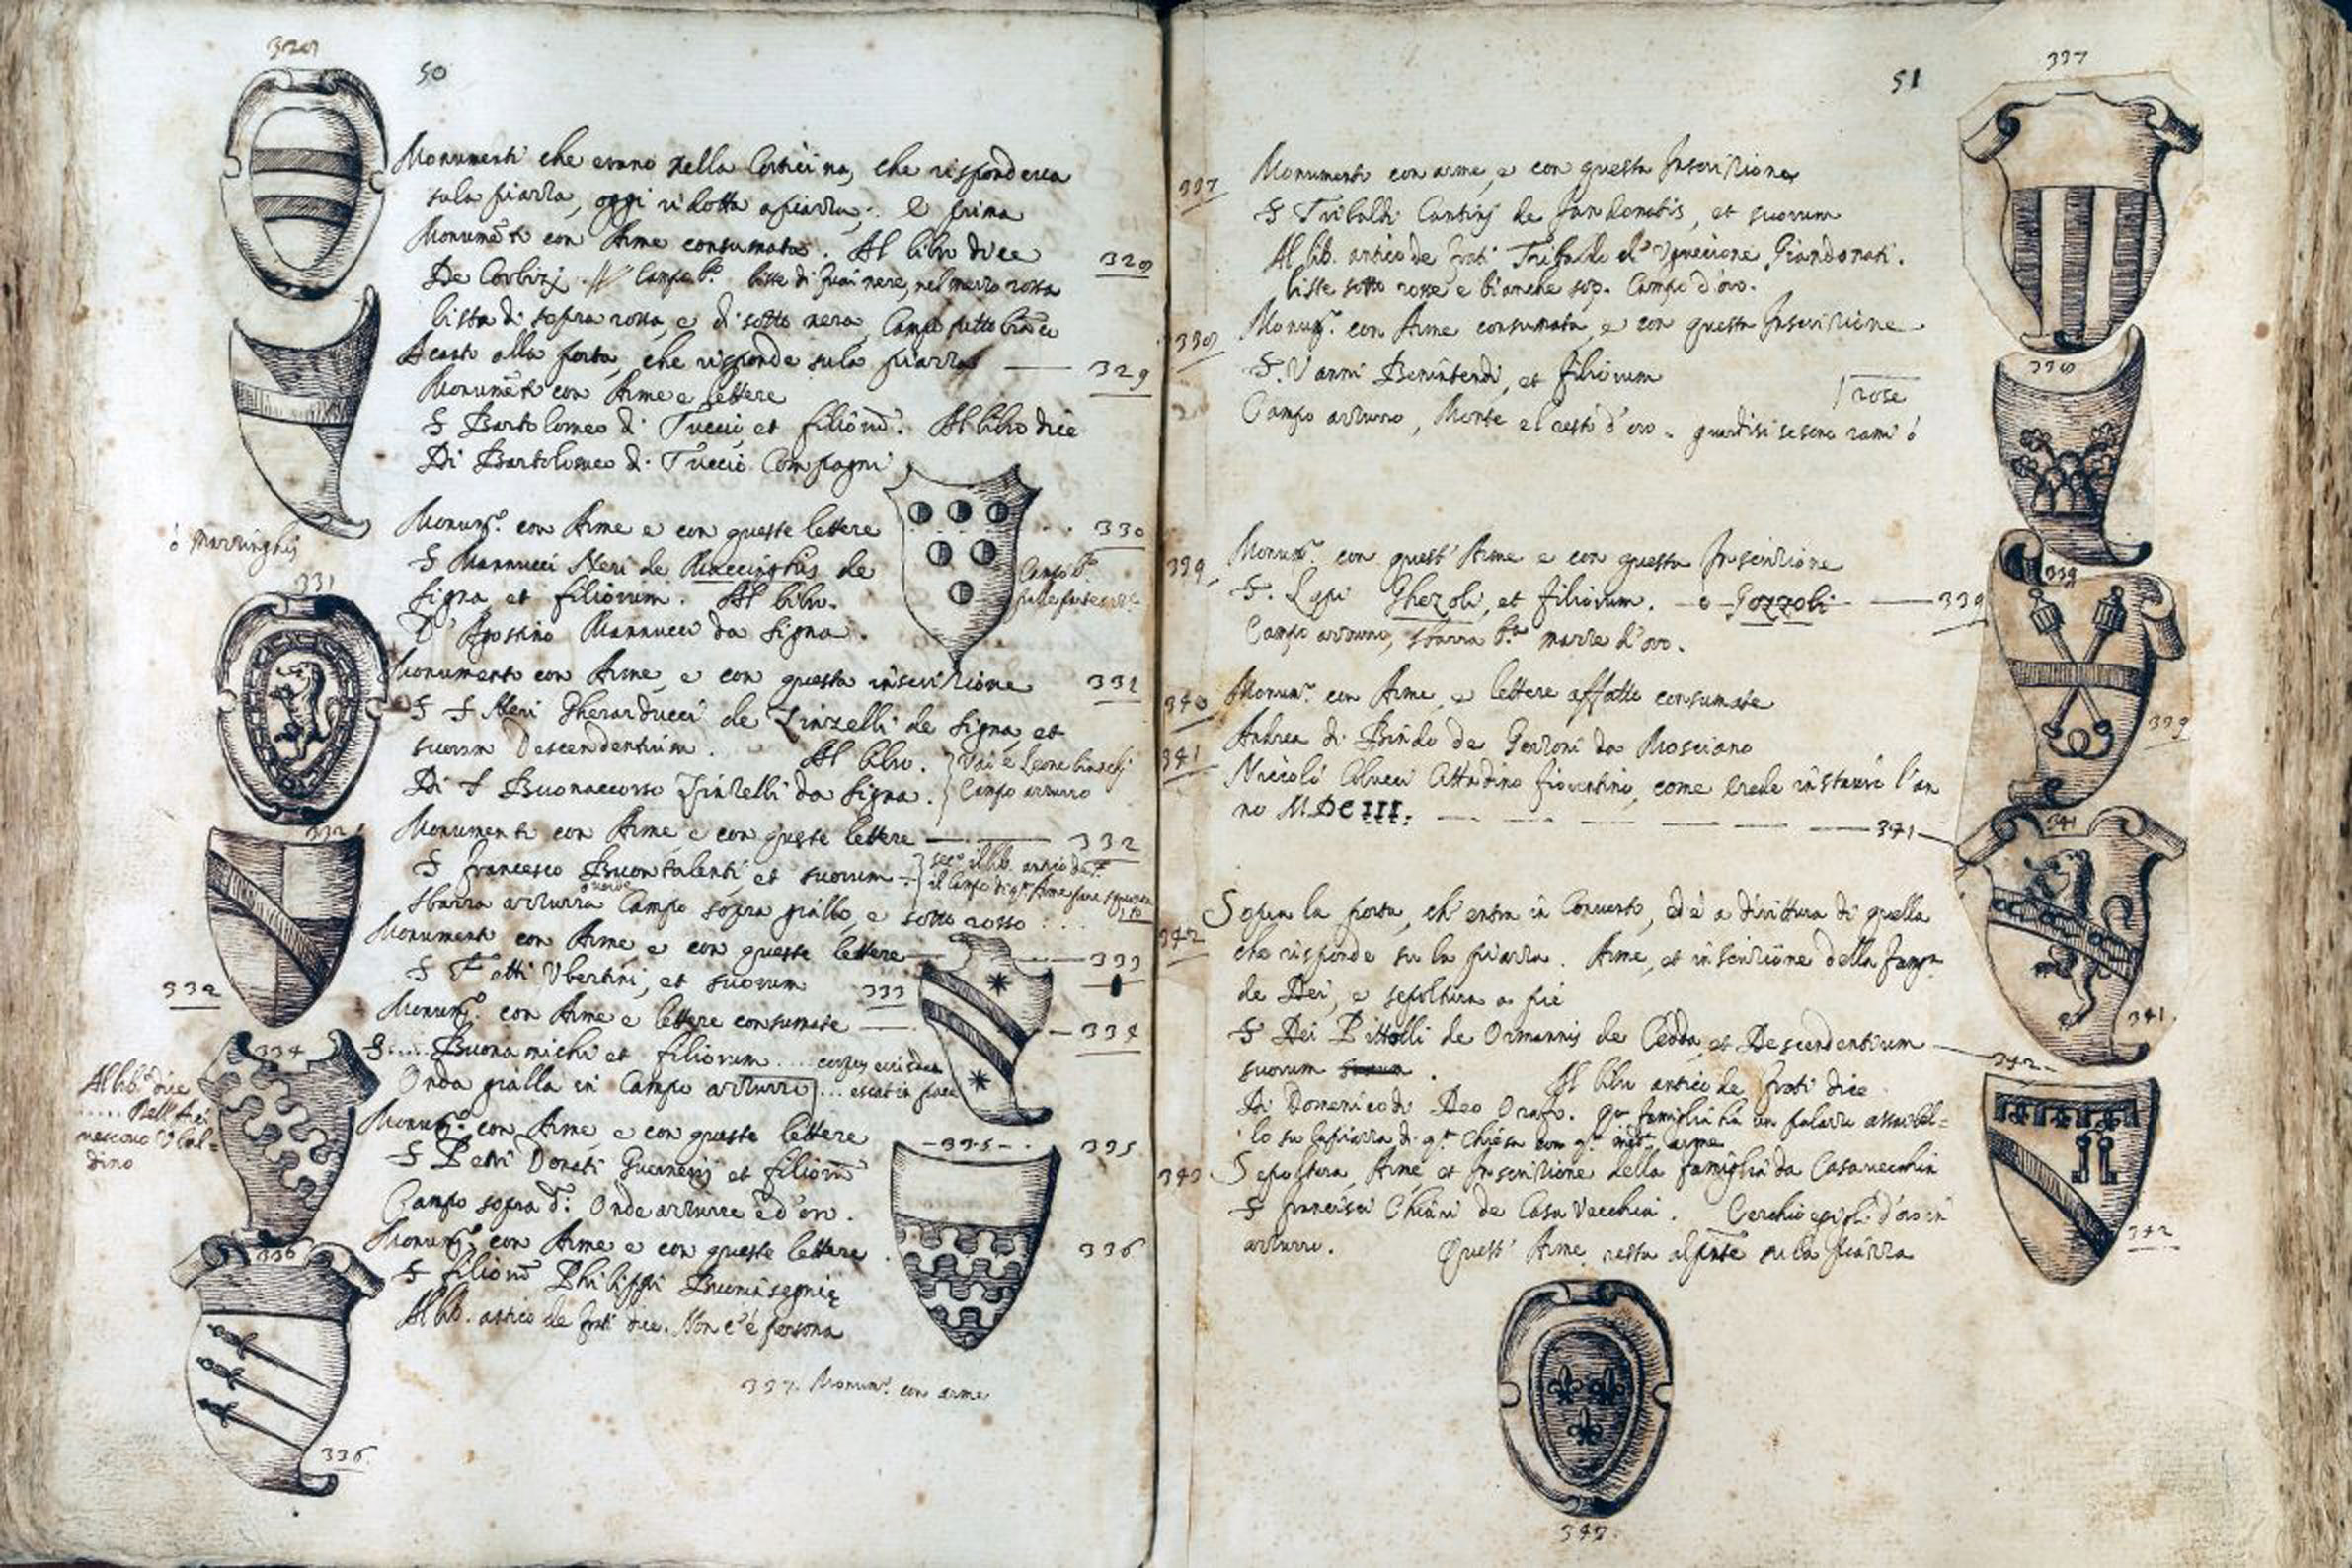 50
Monumenti che erano nella Corticina, che rispondeva
sula piazza, oggi ridotta a piazza. E prima
Monumẽto con Arme consumata. Al libro dice 328
De Corbizi // Campo b.º liste di fuai nere, nel mezzo rossa
lista di sopra rossa, e di sotto nera, Campo tutto biãco
Acanto alla porta, che risponde sula piazza 329
Monumẽto con Arme e lettere
S Bartolomeo di Tuccio et filiorũ. Al libro dice
Di Bartolomeo di Tuccio Compagni
Monum.to con Arme e con queste lettere 330
S Mannucci Neri de Riaccinghis de
Signa et filiorum. Al libro.
D' Agostino Mannucci da Signa.
Campo b.º
ò Mazzinghij
Monumento con Arme, e con questa inscrizione 331
S S Neri Gherarducci de Zinzelli de Signa, et
suorum Descendentium. Al libro.
Di S Buonaccorso Zinzelli da Signa.
Vai e Leone bianchi
Campo azzurro
Monumento con Arme, e con queste lettere 332
S Francesco Buontalenti, et suorum
seg.º il lib. antico de f.
il Campo di q.ª Arme
Sbarra azzurra Campo sopra giallo, e sotto rosso
Monumento con Arme e con queste lettere 333
S Fatti Ubertini, et suorum 333
Monum.to con Arme e lettere consumate 334
S..... Buonamichi et filiorum
Onda gialla in Campo azzurro
Al lib.º dice
..... Nell Arẽ
nescono Ubal=
dino
Monum.to con Arme, e con queste lettere 335
S Petri Donati Guernerij et filiorũ
Campo sopra d'. Onde azzurre ed' oro.
Monum.to con Arme e con queste lettere 336
S filiorũ Philippi Buoninsegnię
Al lib. antico de frati dice. Non c'è persona
337. Monum.to con arme
328
331
332
332
334
335
336
336
51
337 Monumento con arme, e con questa Inscrizione
S Tribaldi Cantini de Jandonatis, et suorum
Al lib. antico de frati Tribaldo di Uguccione Giandonati.
Liste sotto rosse e bianche sop. Campo d'oro.
338 Monum.to con Arme consumata, e con questa Inscrizione
S. Vanni Benintendi, et filiorum
rose
Campo azzurro, Monte el resto d'oro. guardisi se sono rami ò
339 Monum.to con quest' Arme e con questa Inscrizione
S. Lapi Ghezoli, et filiorum. o Gozzoli 339
Campo azzurro, sbarra b.ª mazze d'oro.
340 Monum.to con Arme, e lettere affatto consumate
Andrea di Bindo de Gerzoni da Mosciano
341 Niccolò Colucci Cittadino fiorentino, come erede instaurò l'an
no M.DCIII. 341
342 Sopra la porta, ch' entra in Convento, ed è a dirittura di quella
che risponde su la piazza. Arme, et inscrizione della Famigª
de Dei, e sepoltura a piè
S Dei Pittolli de Ormannis de Cedda et Descendentium 342
suorum. Al libro antico de frati dice
Di Domenico di Deo Orafo. Qª famiglia hà un palazzo assai bel=
lo su la piazza di q.ª Chiesa con q.ª arme
343 Sepoltura, Arme et Inscrizione della famiglia da Casavecchia
S Francisci Chiari de Casa Vecchia. Cerchio e gigli d'oro in
azzurro. Quest' Arme resta al ponte su la piazza
337
338
339
339
341
341.
342
343.